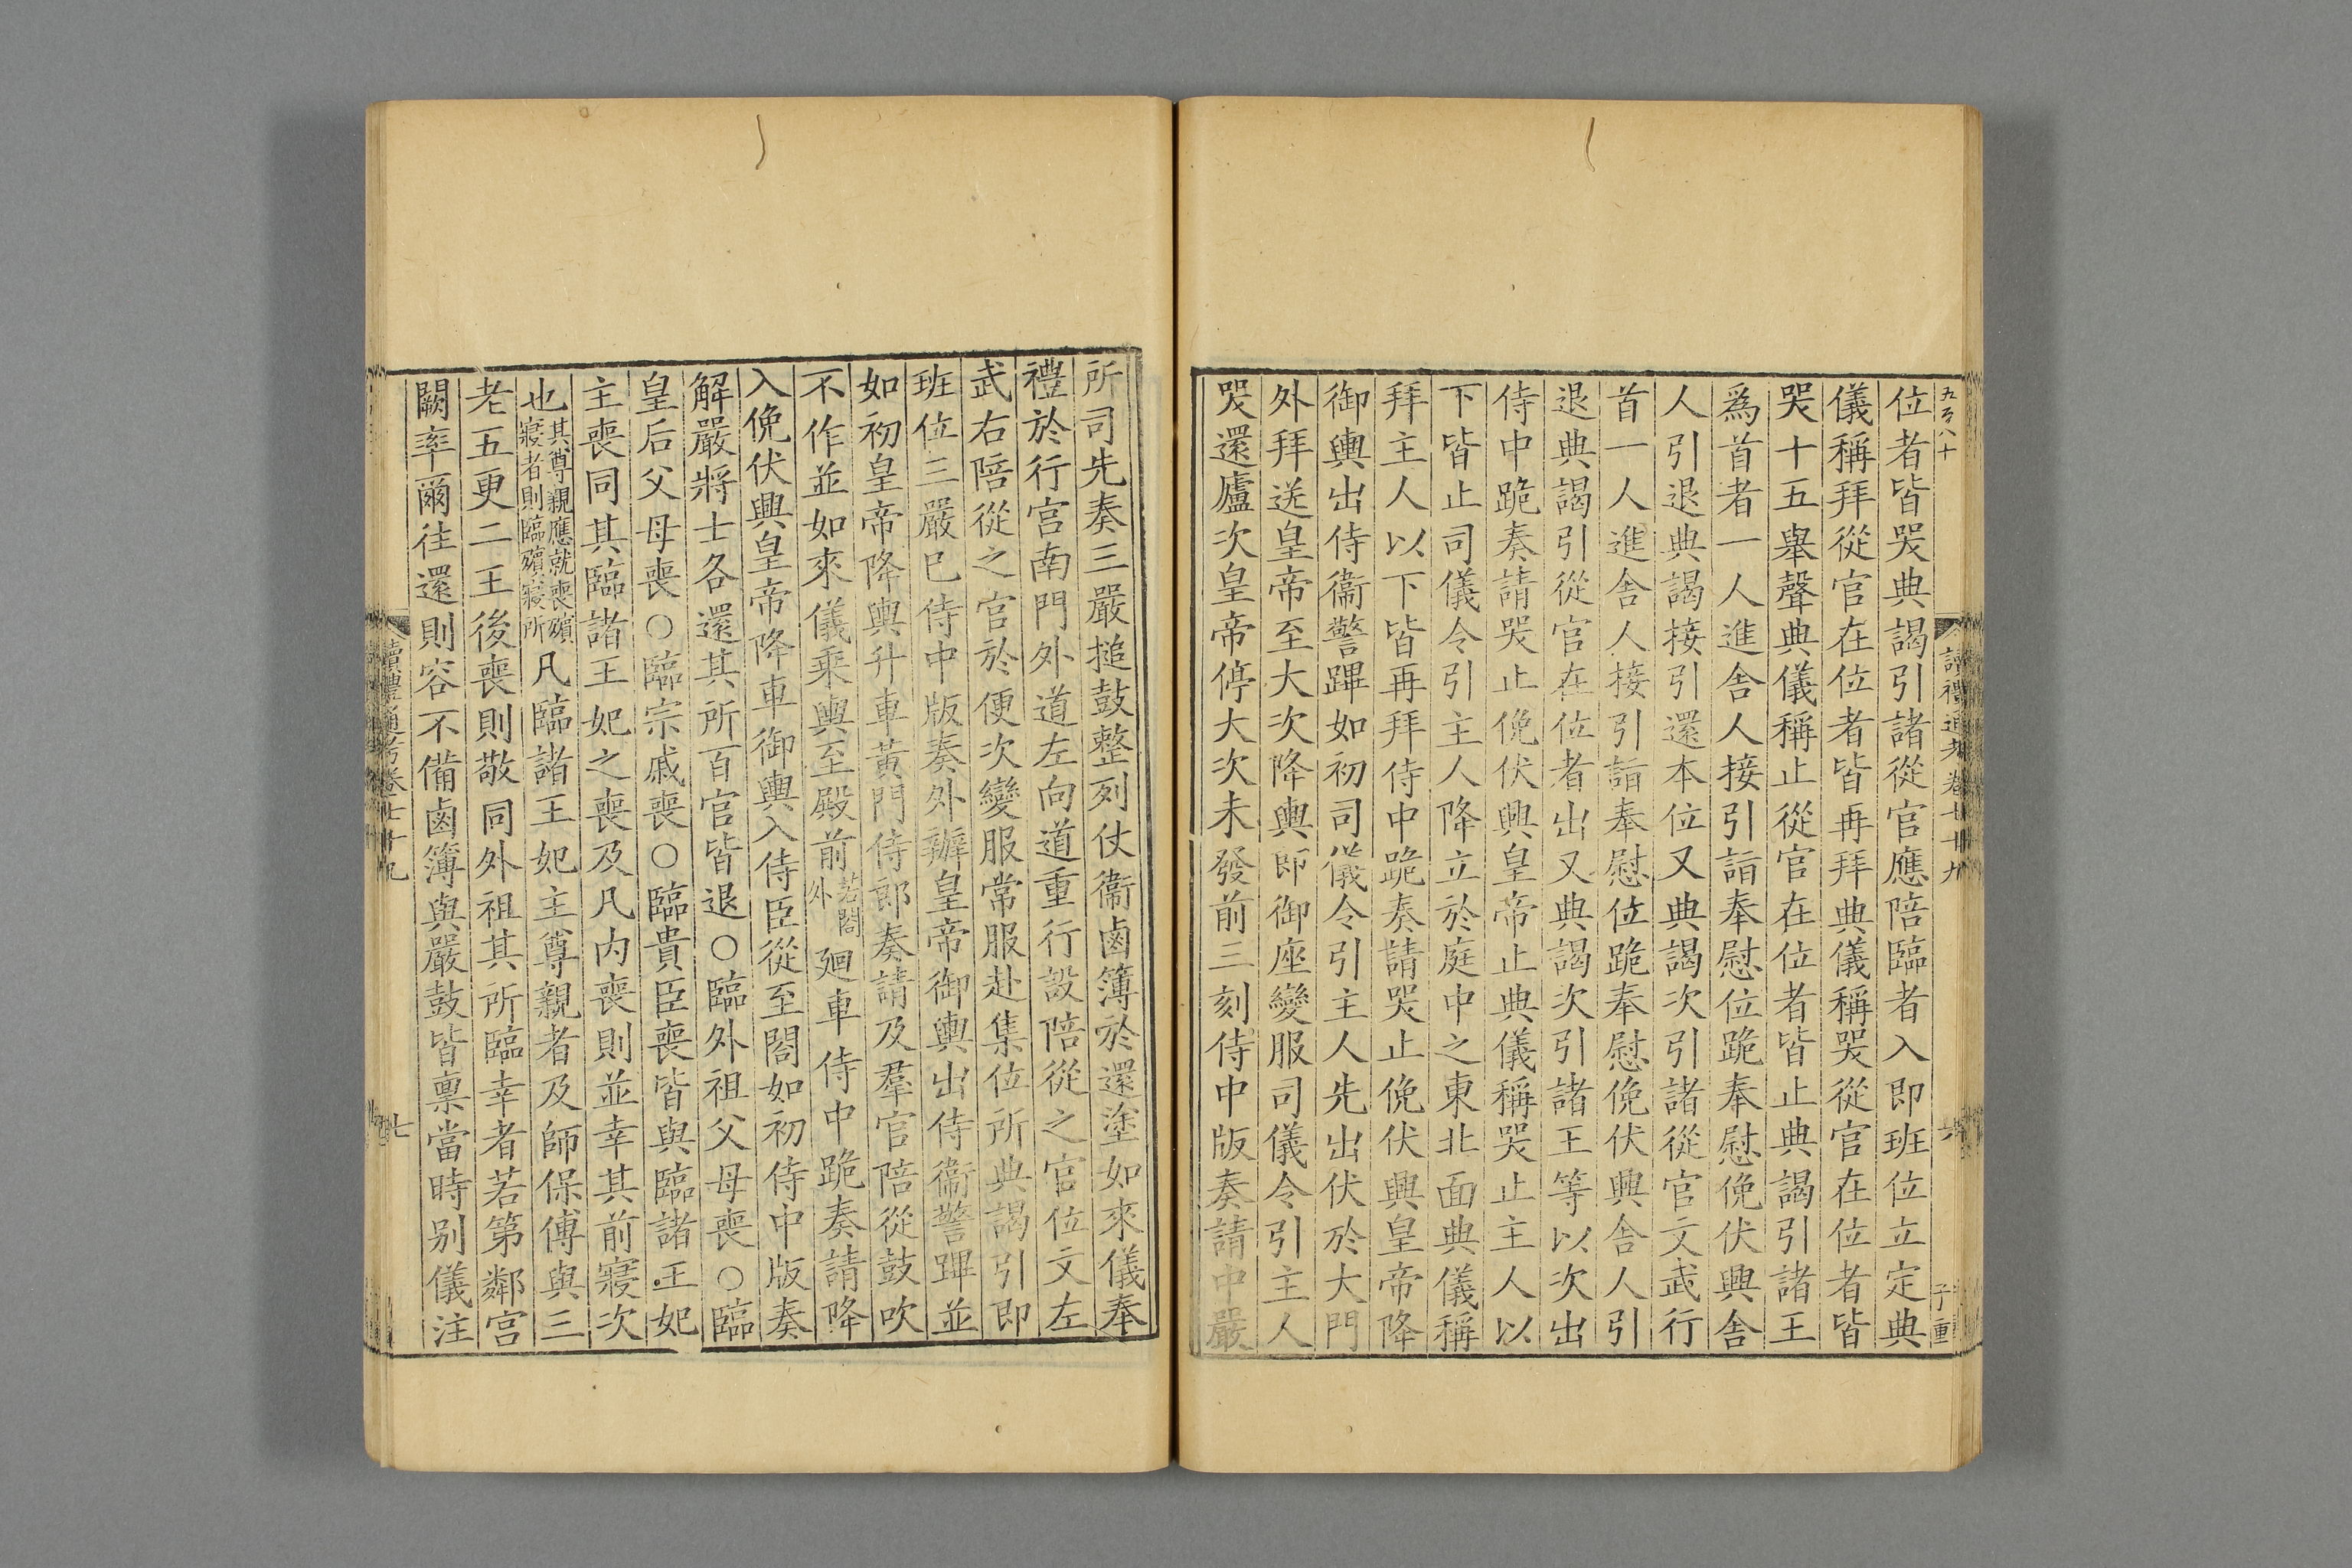 五百八十
讀禮通考卷七十九
六
子重
位者皆哭典謁引諸從官應陪臨者入即班位立定典
儀稱拜從官在位者皆再拜典儀稱哭從官在位者皆
哭十五舉聲典儀稱止從官在位者皆止典謁引諸王
爲首者一人進舍人接引詣奉慰位跪奉慰俛伏興舍
人引退典謁接引還本位又典謁次引諸從官文武行
首一人進舍人接引詣奉慰位跪奉慰俛伏興舍人引
退典謁引從官在位者出又典謁次引諸王等以次出
侍中跪奏請哭止俛伏興皇帝止典儀稱哭止主人以
下皆止司儀令引主人降立於庭中之東北面典儀稱
拜主人以下皆再拜侍中跪奏請哭止俛伏興皇帝降
御輿出侍衞警蹕如初司儀令引主人先出伏於大門
外拜送皇帝至大次降輿即御座變服司儀令引主人
哭還廬次皇帝停大次未發前三刻侍中版奏請中嚴
所司先奏三嚴搥鼓整列仗衞鹵簿於還塗如來儀奉
禮於行宮南門外道左向道重行設陪從之官位文左
武右陪從之官於便次變服常服赴集位所典謁引即
班位三嚴巳侍中版奏外辦皇帝御輿出侍衞警蹕並
如初皇帝降輿升車黃門侍郎奏請及羣官陪從鼓吹
不作並如來儀乘輿至殿前若閤外廻車侍中跪奏請降
入俛伏興皇帝降車御輿入侍臣從至閤如初侍中版奏
解嚴將士各還其所百官皆退○臨外祖父母喪○臨
皇后父母喪○臨宗戚喪○臨貴臣喪皆與臨諸王妃
主喪同其臨諸王妃之喪及凡内喪則並幸其前寢次
也其尊親應就喪殯寢者則臨殯寢所凡臨諸王妃主尊親者及師保傅與三
老五更二王後喪則敬同外祖其所臨幸者若第鄰宮
闕率爾往還則容不備鹵簿與嚴鼓皆禀當時别儀注
讀禮通考卷七十九
七